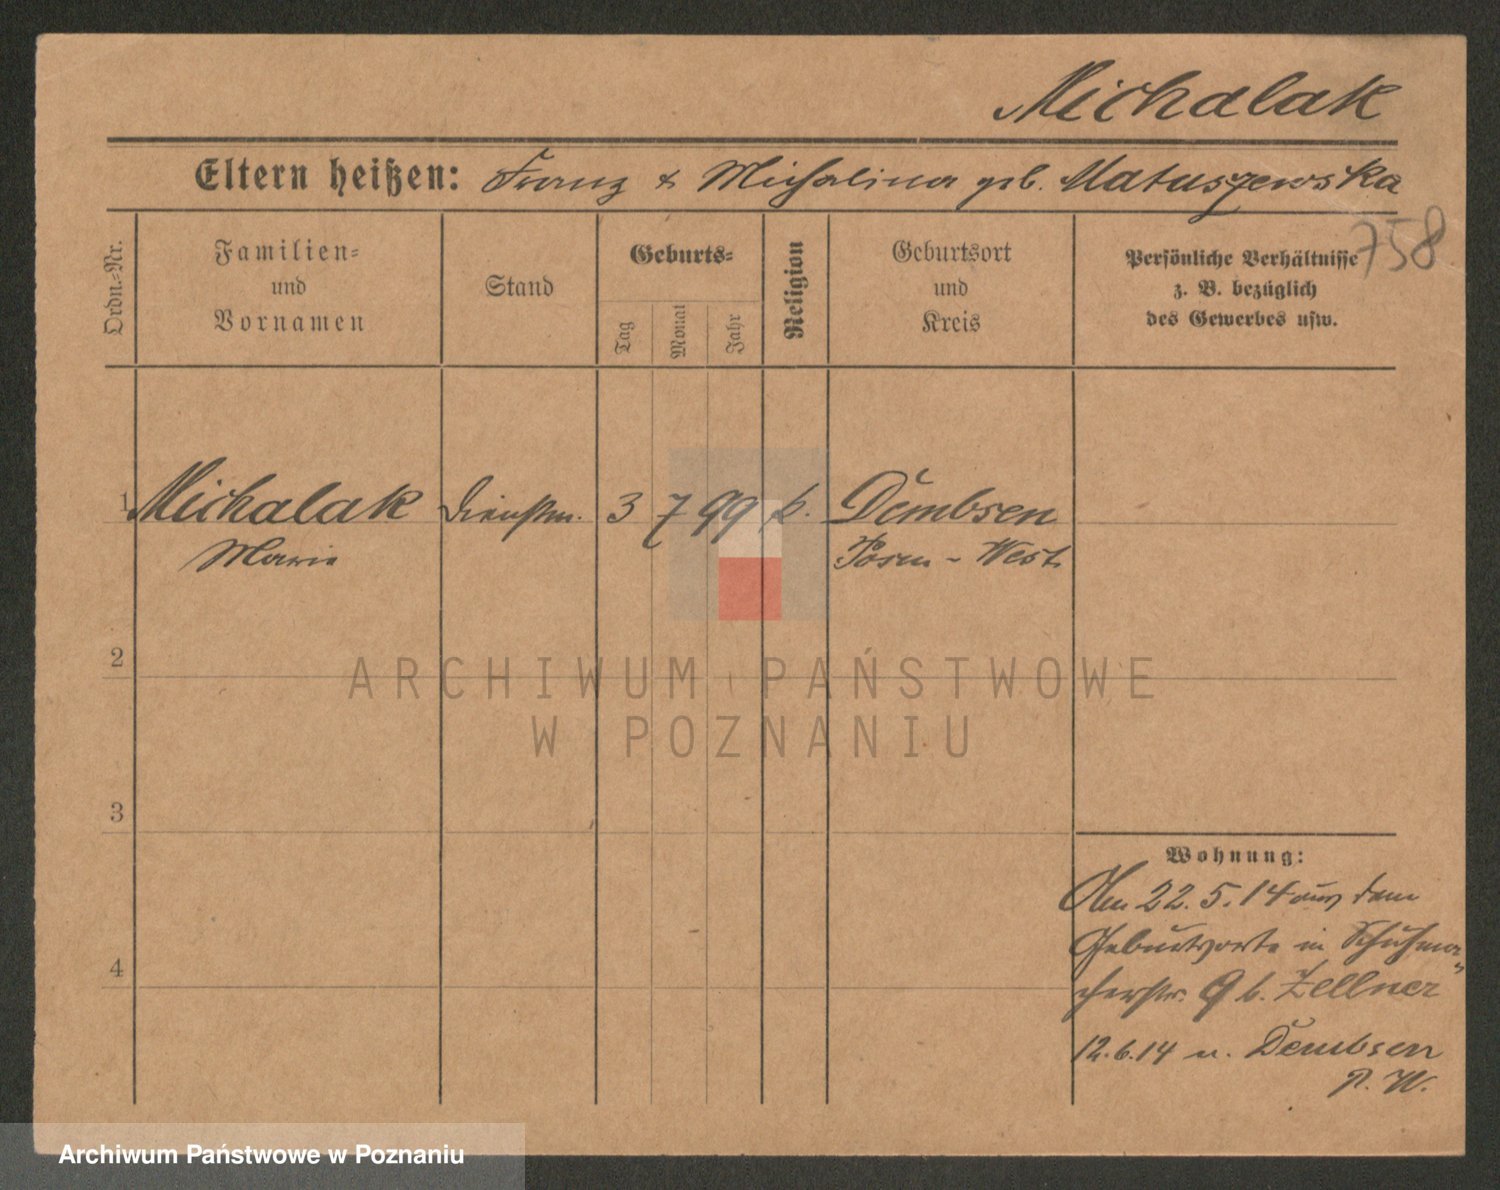 Michalak
Eltern heißen: Franz & Michalina geb. Matuszewska
758
Ordn.-Nr.
Familien-
und
Vornamen
Stand
Geburts-
Tag
Monat
Jahr
Religion
Geburtsort
und
Kreis
Persönliche Verhältnisse
z. B. bezüglich
des Gewerbes usw.
1 Michalak Dienstm. 3 7 99 k. Dembsen
Marie Posen - West
2
ARCHIWUM PAŃSTWOWE
W POZNANIU
3
Wohnung:
Am 22.5.14 aus dem
Geburtsorte in Schuhma„
4
cherstr. 9 b. Zellner
12.6.14 n. Dembsen
P. W.
Archiwum Państwowe w Poznaniu